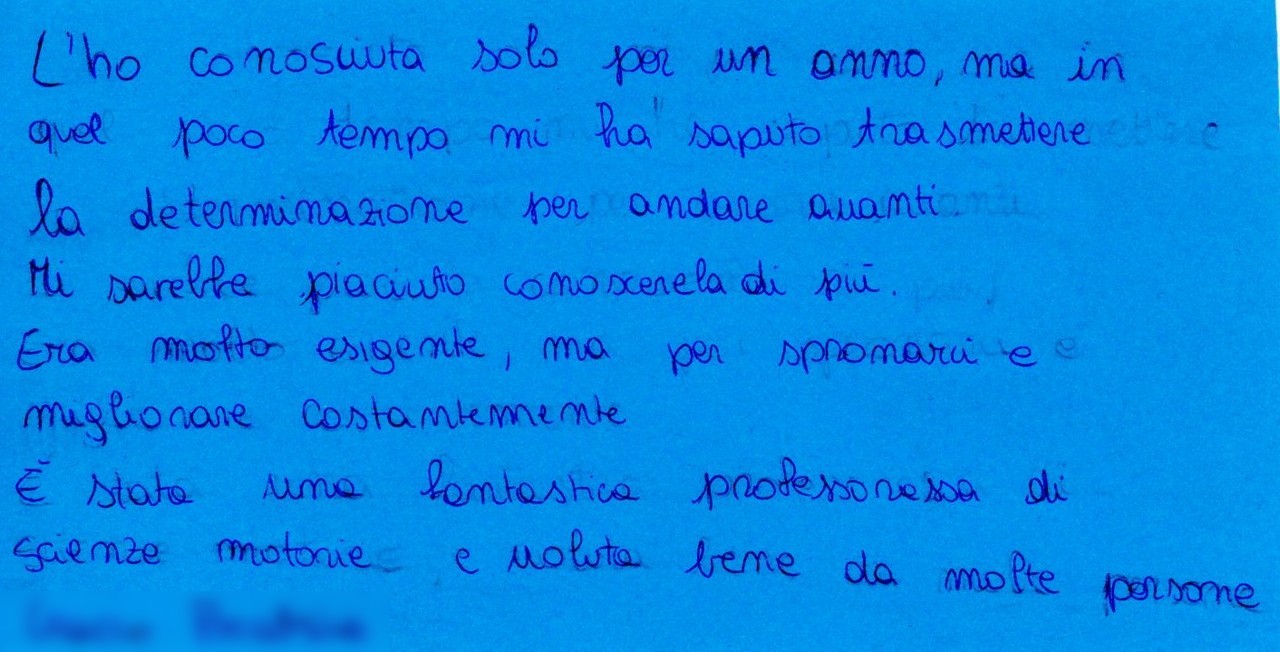 L'ho conosciuta solo per un anno, ma in
quel poco tempo mi ha saputo trasmettere
la determinazione per andare avanti
Mi sarebbe piaciuto conoscerela di più.
Era molto esigente, ma per spronarci e
migliorare costantemente
È stata una fantastica professoressa di
scienze motorie e voluta bene da molte persone